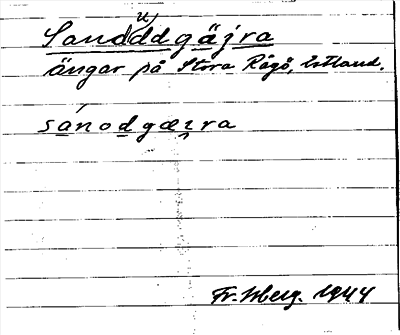 Sanddgäjra
ängar på Stora Rågö, Estland.
sánodgæɪ̯ra
Fr. Wberg. 1944